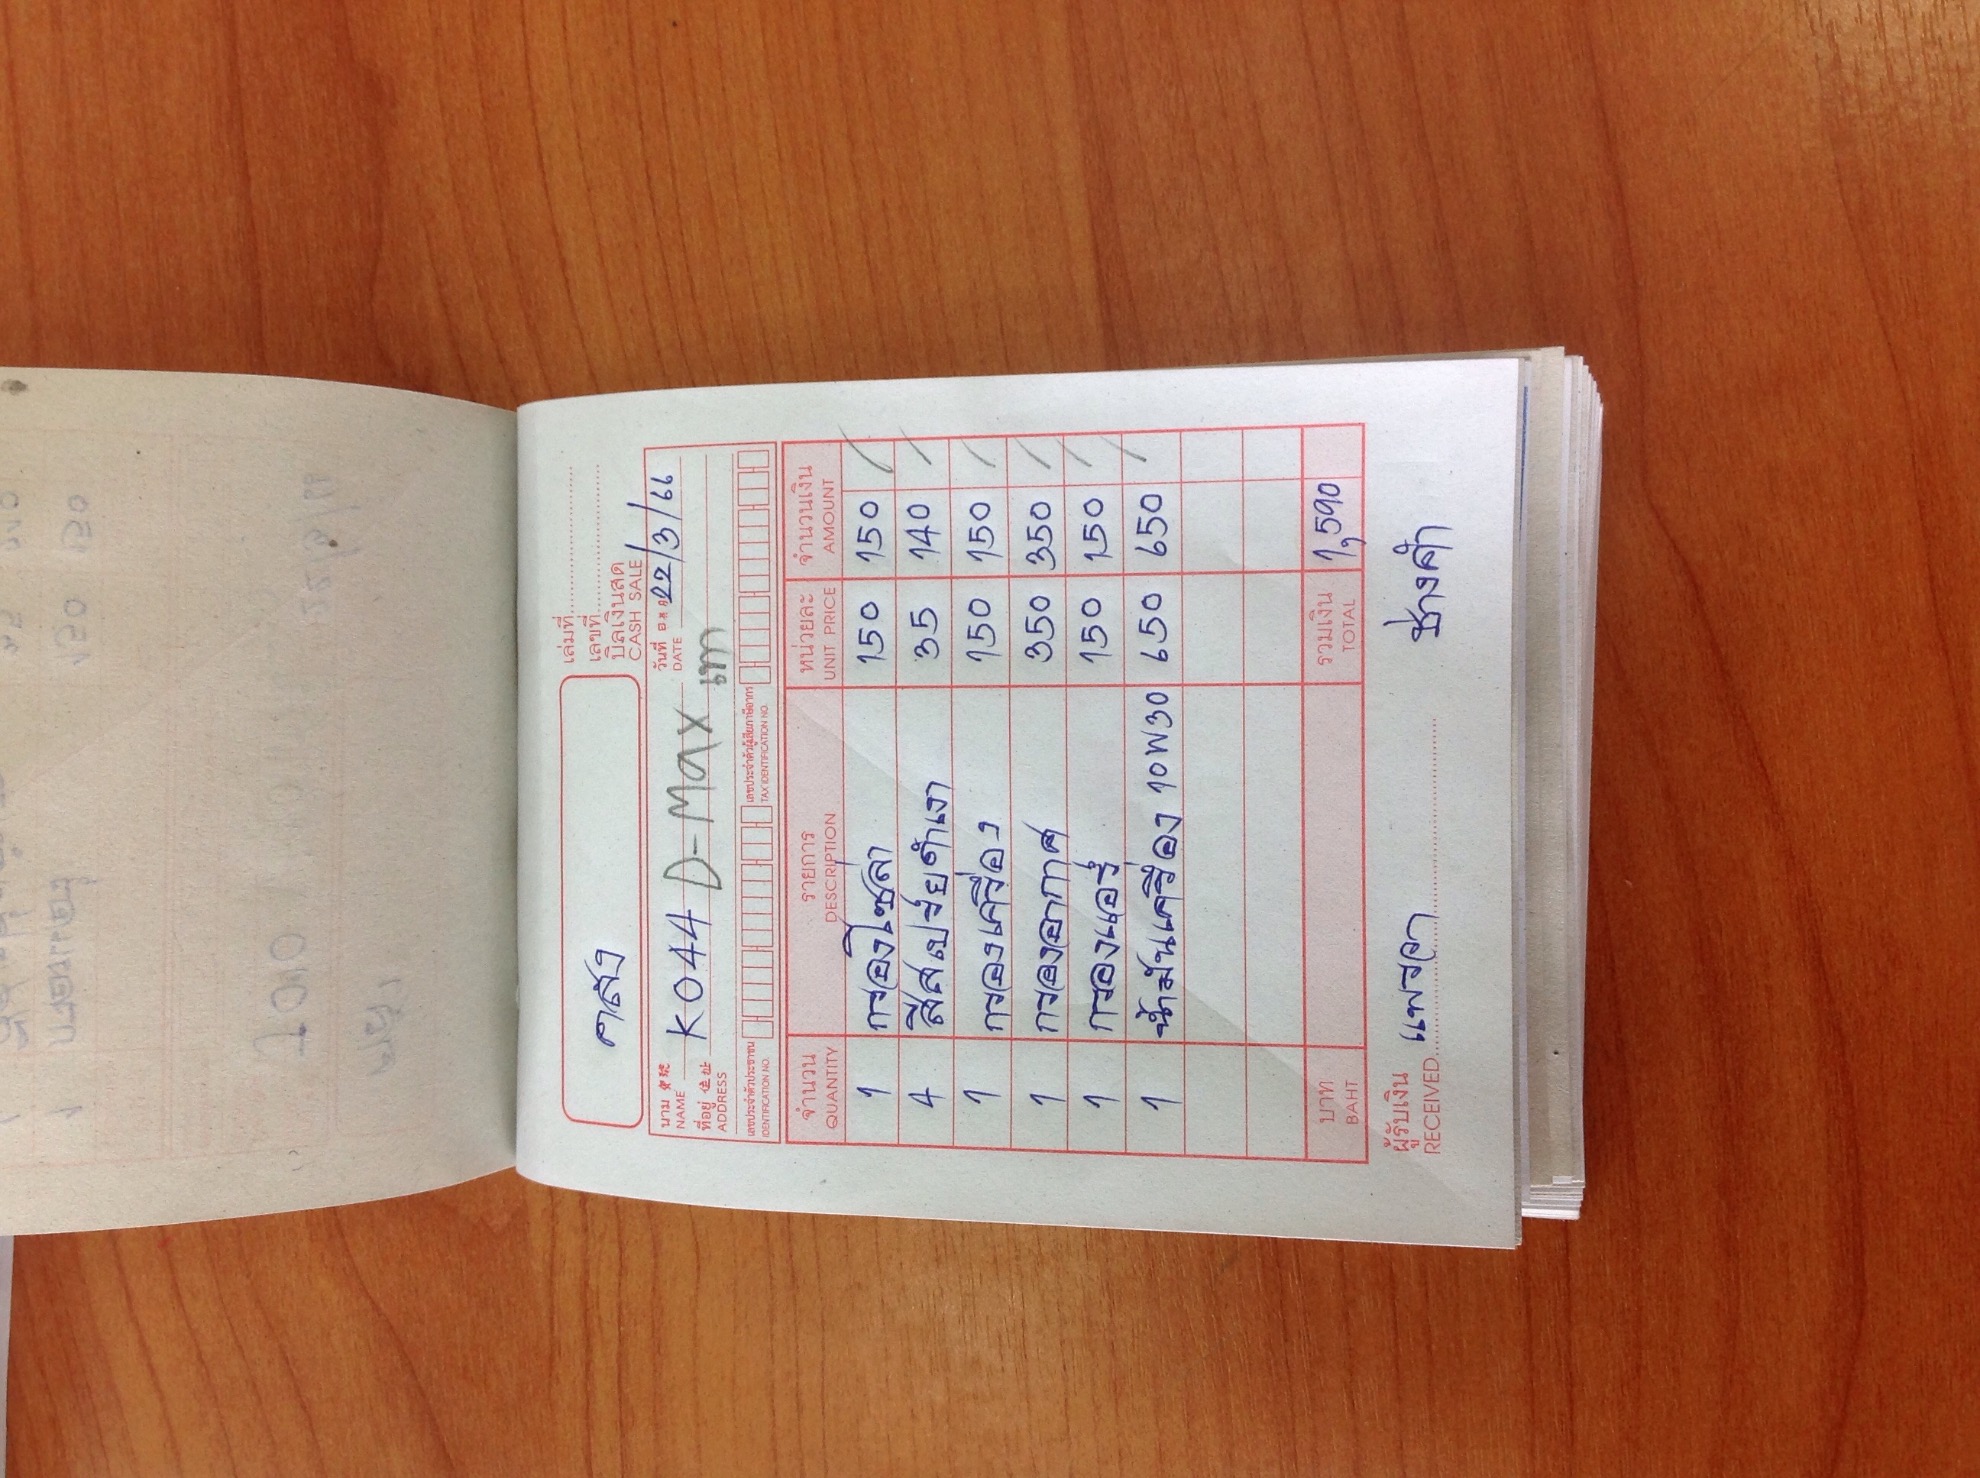 เล่มที่
เลขที่
คสง
บิลเงินสด
CASH SALE
นาม K044 D-Max วันที่ 22/3/66
NAME DATE
ที่อยู่
ADDRESS
เลขประจำตัวประชาชน เลขประจำตัวผู้เสียภาษีอากร
IDENTIFICATION NO. TAX IDENTIFICATION NO.
จำนวน รายการ หน่วยละ จำนวนเงิน
QUANTITY DESCRIPTION UNIT PRICE AMOUNT
1 กรองโซล่า 150 150
4 สีสเปรย์ดำเงา 35 140
1 กรองเครื่อง 150 150
1 กรองอากาศ 350 350
1 กรองแอร์ 150 150
1 น้ำมันเครื่อง 10W30 650 650
บาท รวมเงิน 1,590
BAHT TOTAL
ผู้รับเงิน แพรวา ช่างคำ
RECEIVED